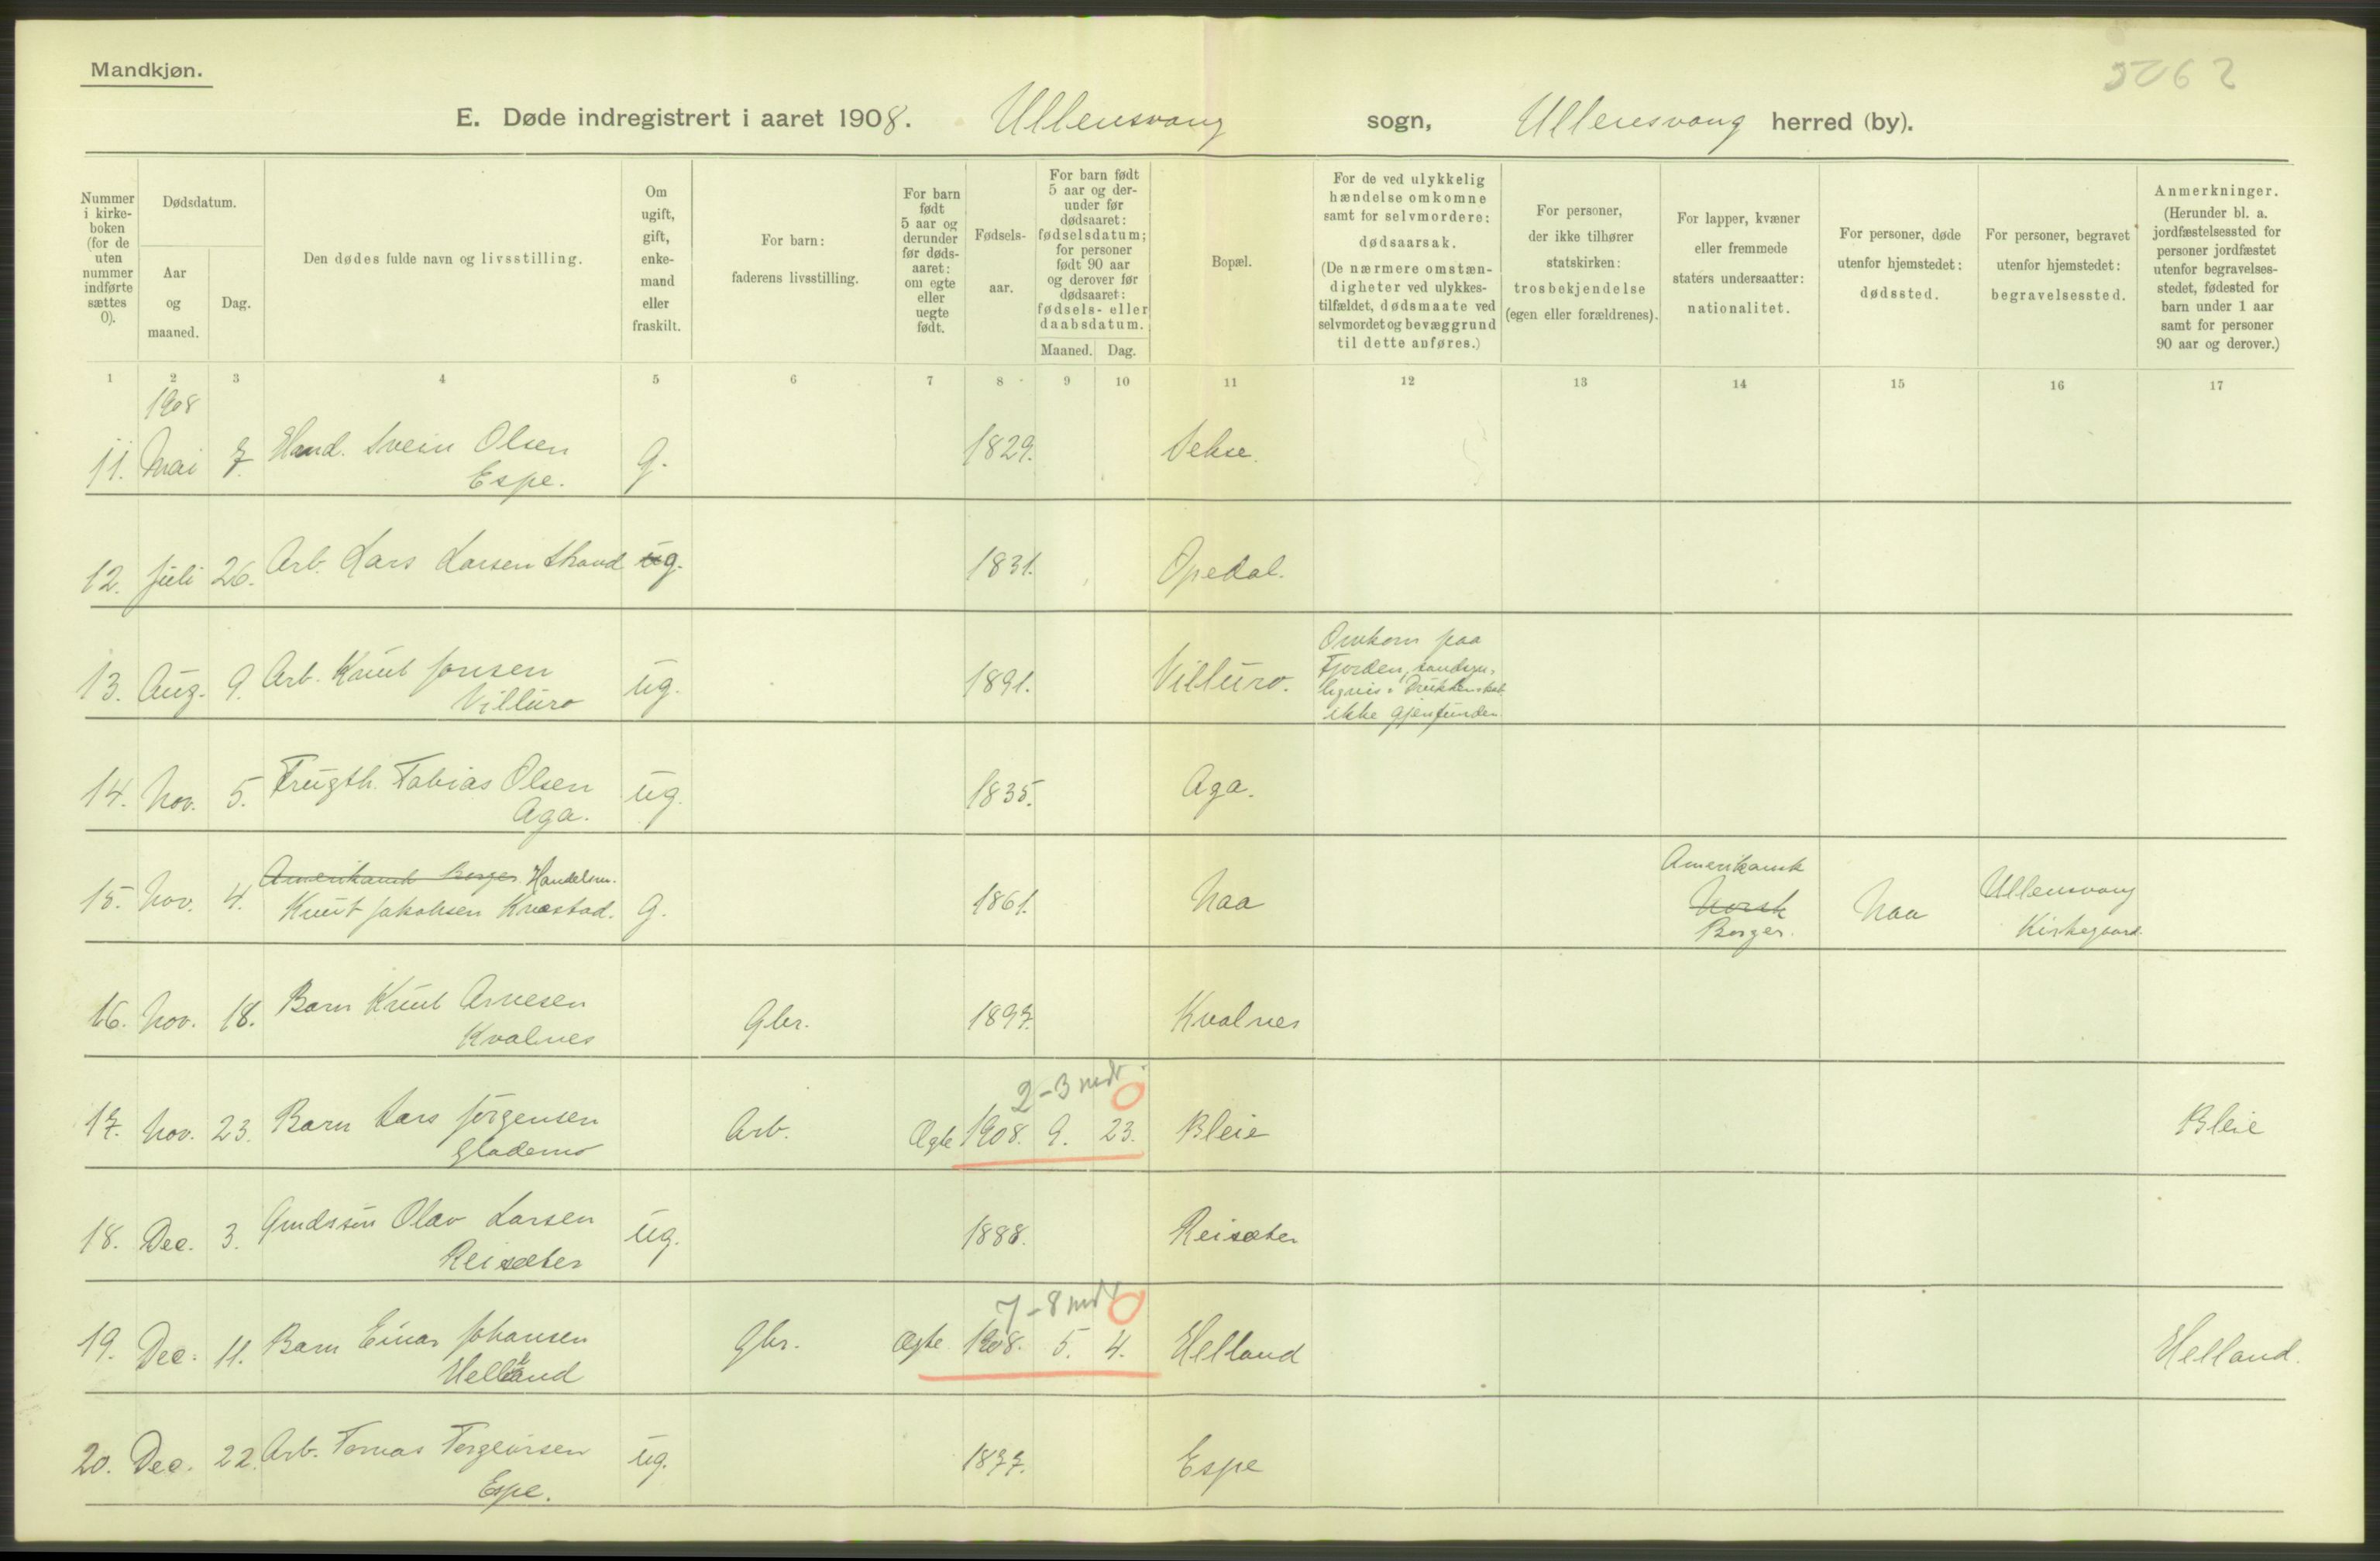 Mandkjøn.
5062
E. Døde indregistrert i aaret 1908. Ullensvang sogn, Ullensvang herred (by).
Nummer i kirke-boken (for de uten nummer indførte sættes 0).
Dødsdatum.
Aar og maaned.
Dag.
Den dødes fulde navn og livsstilling.
Om ugift, gift, enke-mand eller fraskilt.
For barn: faderens livsstilling.
For barn født 5 aar og derunder før døds-aaret: om egte eller uegte født.
Fødsels-aar.
For barn født 5 aar og der-under før dødsaaret: fødselsdatum; for personer født 90 aar og derover før dødsaaret: fødsels- eller daabsdatum.
Maaned. Dag.
Bopæl.
For de ved ulykkelig hændelse omkomne samt for selvmordere: dødsaarsak. (De nærmere omstæn-digheter ved ulykkes-tilfældet, dødsmaate ved selvmordet og bevæggrund til dette anføres.)
For personer, der ikke tilhører statskirken: trosbekjendelse (egen eller forældrenes).
For lapper, kvæner eller fremmede staters undersaatter: nationalitet.
For personer, døde utenfor hjemstedet: dødssted.
For personer, begravet utenfor hjemstedet: begravelsessted.
Anmerkninger. (Herunder bl. a. jordfæstelsessted for personer jordfæstet utenfor begravelses-stedet, fødested for barn under 1 aar samt for personer 90 aar og derover.)
1 2 3 4 5 6 7 8 9 10 11 12 13 14 15 16 17
1908
11. Mai 7. Haand. Svein Olsen Espe. g. 1829. Sekse.
12. Juli 26. Arb. Lars Larsen Skaad ug. 1831. Opedal.
13. Aug. 9. Arb. Knut Jonsen Villuro ug. 1891. Villuro. Omkom paa Fjorden, sandsyn-ligvis i Drukkenskab ikke gjenfunden
14. Nov. 5. Frugth. Tobias Olsen Aga. ug. 1835. Aga.
15. Nov. 4. Amerikansk Borger Handelsm. Knut Jakobsen Kvæstad. g. 1861. Naa Amerikansk Norsk Borger. Naa Ullensvang Kirkegaard.
16. Nov. 18. Barn Knut Arnesen Kvalnes Gbr. 1897. Kvalnes
2-3 mdr. 0
17. Nov. 23. Barn Lars Jørgensen Glademo Arb. Ægte 1908. 9. 23. Bleie Bleie
18. Dec. 3. Grudssøn Olav Larsen Reisæter ug. 1888. Reisæter
7-8 mdr 0
19. Dec. 11. Barn Einar Johansen Helland Gbr. Ægte 1908. 5. 4. Helland Helland.
20. Dec. 22. Arb. Tomas Torgeirsen Espe. ug. 1877. Espe